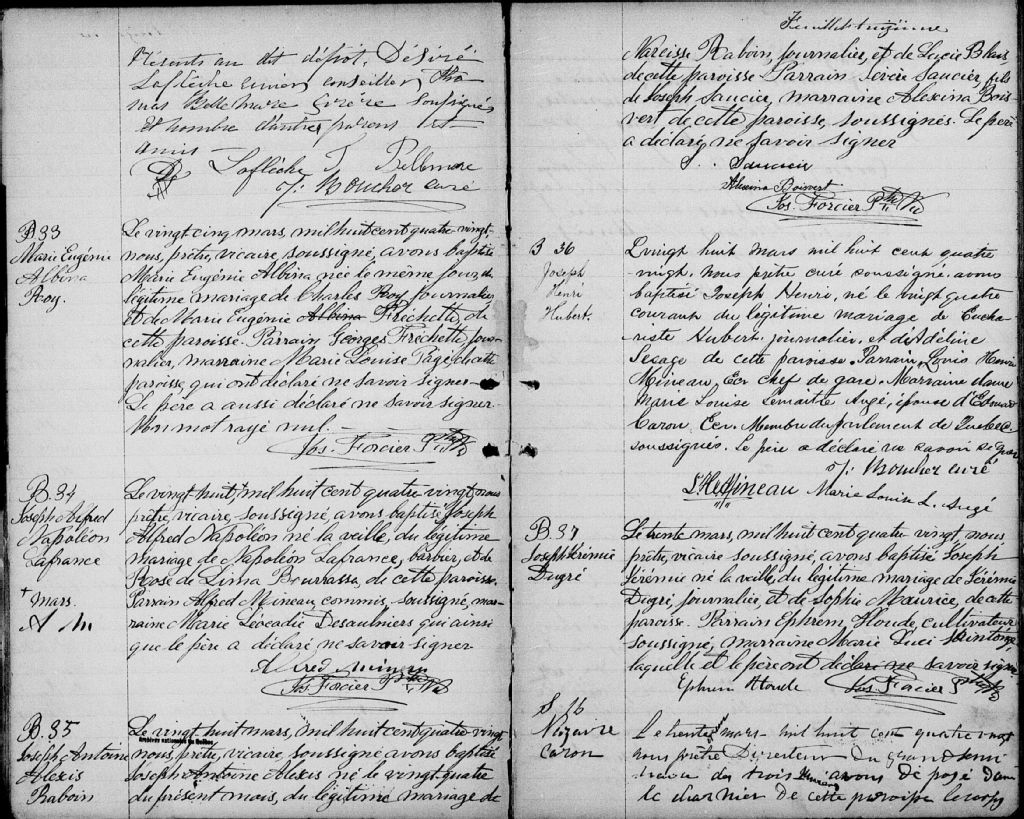 Présents au dit dépot, Désiré
Lafleche ancien conseiller, Tho
mas Bellemare Ecuïère soussignés
et nombre d'autres parens et
amis
D Lafleche T Bellemare
J. Boucher curé
B 33
Marie Eugénie
Albina
Roy.
Le vingt cinq mars, mil huit cent quatre-vingt
nous, prêtre, vicaire, soussigné, avons baptisé
Marie Eugénie Albina née le même jour, du
légitime mariage de Charles Roy, journalier
et de Marie Eugénie Albina Frechette, de
cette paroisse. Parrain Georges Frechette, jour-
nalier, marraine Marie Louise Pagé, de cette
paroisse, qui ont déclaré ne savoir signer
Le père a aussi déclaré ne savoir signer
mot rayé nul.
Jos. Forcier Ptre Vic
B. 34
Joseph Alfred
Napoléon
Lafrance
+ mars.
A M
Le vingt huit, + mil huit cent quatre vingt, nous
prêtre, vicaire, soussigné, avons baptisé Joseph
Alfred Napoléon né la veille, du légitime
mariage de Napoléon Lafrance, barbier, et de
Rose de Lima Bourassa, de cette paroisse.
Parrain Alfred Mineau commis, soussigné, mar-
raine Marie Léocadie Desaulniers qui ainsi
que le père a déclaré ne savoir signer
Alfred Mineau
Jos. Forcier Ptre Vic
B. 35
Joseph Antoine
Alexis
Raboin
Le vingt huit mars, mil huit cent quatre vingt
Archives nationales du Québec
nous, prêtre, vicaire, soussigné avons baptisé
Joseph Antoine Alexis né le vingt-quatre
du présent mois, du légitime mariage de
Feuillet onzième
Narcisse Raboin, journalier, et de Lucie Blais,
de cette paroisse Parrain Saucier, fils
de Joseph Saucier, marraine Alexina Bois-
vert de cette paroisse, soussignés. Le père
a déclaré ne savoir signer
Saucier
Alexina Boisvert
Jos. Forcier Ptre Vic
B 36
Joseph
Henri
Hubert.
Le vingt huit mars mil huit cent quatre
vingt. nous prêtre curé soussigné avons
baptisé Joseph Henri, né le vingt quatre
courant du légitime mariage de Eucha-
riste Hubert journalier, et de Adeline
Lesage de cette paroisse. Parrain, Louis Henri
Mineau, Ecr chef de gare. Marraine dame
Marie Louise Lemaitre Augé, épouse d'Edouard
Caron, Ecr. Membre du parlement de Quebec
soussignés. Le père a déclaré ne savoir signer
J. Boucher curé
L. H. Mineau Marie Louise L. Augé
B. 37
Joseph Jérémie
Dugré
Le trente mars, mil huit cent quatre vingt, nous,
prêtre, vicaire soussigné, avons baptisé Joseph
Jérémie né la veille, du légitime mariage de Jérémie
Dugré, journalier, et de Sophie Maurice, de cette
paroisse. Parrain Ephrem Houde, cultivateur
soussigné, marraine Marie Luci
laquelle et le père ont déclaré ne savoir signer
Ephrem Houde Jos. Forcier Ptre Vic
S 16
Nazaire
Caron
Le trente mars mil huit cent quatre vingt
nous prêtre Directeur du grand sémi
naire des trois avons déposé dans
le charnier de cette paroisse le corps